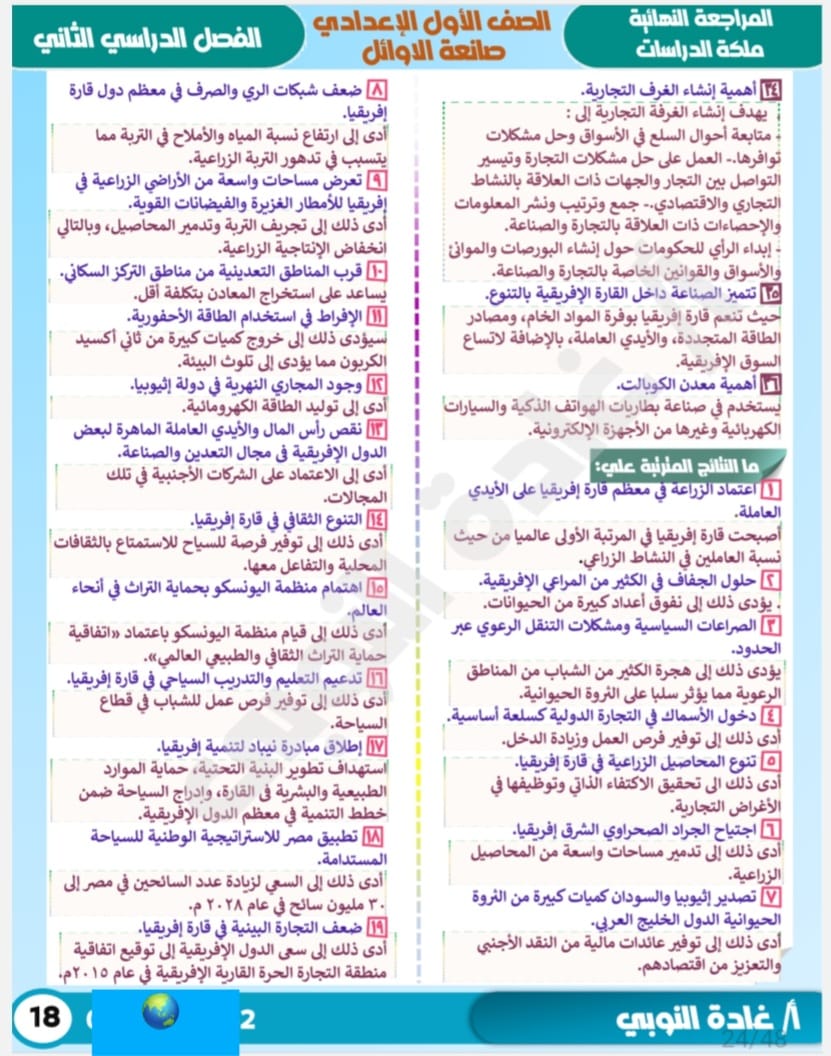 المراجعة النهائية
ملكة الدراسات
الصف الأول الإعدادي
صانعة الاوائل
الفصل الدراسي الثاني
٢٤ أهمية إنشاء الغرف التجارية.
. يهدف إنشاء الغرفة التجارية إلى :
- متابعة أحوال السلع في الأسواق وحل مشكلات
توافرها.- العمل على حل مشكلات التجارة وتيسير
التواصل بين التجار والجهات ذات العلاقة بالنشاط
التجاري والاقتصادي.- جمع وترتيب ونشر المعلومات
والإحصاءات ذات العلاقة بالتجارة والصناعة.
- إبداء الرأي للحكومات حول إنشاء البورصات والموانئ
والأسواق والقوانين الخاصة بالتجارة والصناعة.
٢٥ تتميز الصناعة داخل القارة الإفريقية بالتنوع.
حيث تنعم قارة إفريقيا بوفرة المواد الخام، ومصادر
الطاقة المتجددة، والأيدي العاملة، بالإضافة لاتساع
السوق الإفريقية.
٢٦ أهمية معدن الكوبالت.
يستخدم في صناعة بطاريات الهواتف الذكية والسيارات
الكهربائية وغيرها من الأجهزة الإلكترونية.
ما النتائج المترتبة علي:
١ اعتماد الزراعة في معظم قارة إفريقيا على الأيدي
العاملة.
أصبحت قارة إفريقيا في المرتبة الأولى عالميا من حيث
نسبة العاملين في النشاط الزراعي.
٢ حلول الجفاف في الكثير من المراعي الإفريقية.
. يؤدى ذلك إلى نفوق أعداد كبيرة من الحيوانات.
٣ الصراعات السياسية ومشكلات التنقل الرعوي عبر
الحدود.
يؤدى ذلك إلى هجرة الكثير من الشباب من المناطق
الرعوية مما يؤثر سلبا على الثروة الحيوانية.
٤ دخول الأسماك في التجارة الدولية كسلعة أساسية.
أدى ذلك إلى توفير فرص العمل وزيادة الدخل.
٥ تنوع المحاصيل الزراعية في قارة إفريقيا.
أدى ذلك الى تحقيق الاكتفاء الذاتي وتوظيفها في
الأغراض التجارية.
٦ اجتياح الجراد الصحراوي الشرق إفريقيا.
أدى ذلك إلى تدمير مساحات واسعة من المحاصيل
الزراعية.
٧ تصدير إثيوبيا والسودان كميات كبيرة من الثروة
الحيوانية الدول الخليج العربي.
أدى ذلك إلى توفير عائدات مالية من النقد الأجنبي
والتعزيز من اقتصادهم.
٨ ضعف شبكات الري والصرف في معظم دول قارة
إفريقيا.
أدى إلى ارتفاع نسبة المياه والأملاح في التربة مما
يتسبب في تدهور التربة الزراعية.
٩ تعرض مساحات واسعة من الأراضي الزراعية في
إفريقيا للأمطار الغزيرة والفيضانات القوية.
أدى ذلك إلى تجريف التربة وتدمير المحاصيل، وبالتالي
انخفاض الإنتاجية الزراعية.
١٠ قرب المناطق التعدينية من مناطق التركز السكاني.
يساعد على استخراج المعادن بتكلفة أقل.
١١ الإفراط في استخدام الطاقة الأحفورية.
سيؤدى ذلك إلى خروج كميات كبيرة من ثاني أكسيد
الكربون مما يؤدى إلى تلوث البيئة.
١٢ وجود المجاري النهرية في دولة إثيوبيا.
أدى إلى توليد الطاقة الكهرومائية.
١٣ نقص رأس المال والأيدي العاملة الماهرة لبعض
الدول الإفريقية فى مجال التعدين والصناعة.
أدى إلى الاعتماد على الشركات الأجنبية في تلك
المجالات.
١٤ التنوع الثقافي في قارة إفريقيا.
أدى ذلك إلى توفير فرصة للسياح للاستمتاع بالثقافات
المحلية والتفاعل معها.
١٥ اهتمام منظمة اليونسكو بحماية التراث في أنحاء
العالم.
أدى ذلك إلى قيام منظمة اليونسكو باعتماد «اتفاقية
حماية التراث الثقافي والطبيعي العالمي».
١٦ تدعيم التعليم والتدريب السياحي في قارة إفريقيا.
أدى ذلك إلى توفير فرص عمل للشباب في قطاع
السياحة.
١٧ إطلاق مبادرة نيباد لتنمية إفريقيا.
استهداف تطوير البنية التحتية، حماية الموارد
الطبيعية والبشرية فى القارة، وإدراج السياحة ضمن
خطط التنمية في معظم الدول الإفريقية.
١٨ تطبيق مصر للاستراتيجية الوطنية للسياحة
المستدامة.
أدى ذلك إلى السعي لزيادة عدد السائحين في مصر إلى
٣٠ مليون سائح في عام ٢٠٢٨ م.
١٩ ضعف التجارة البينية في قارة إفريقيا.
أدى ذلك إلى سعى الدول الإفريقية إلى توقيع اتفاقية
منطقة التجارة الحرة القارية الإفريقية في عام ٢٠١٥م.
أ/ غادة النوبي
24/48
2
18